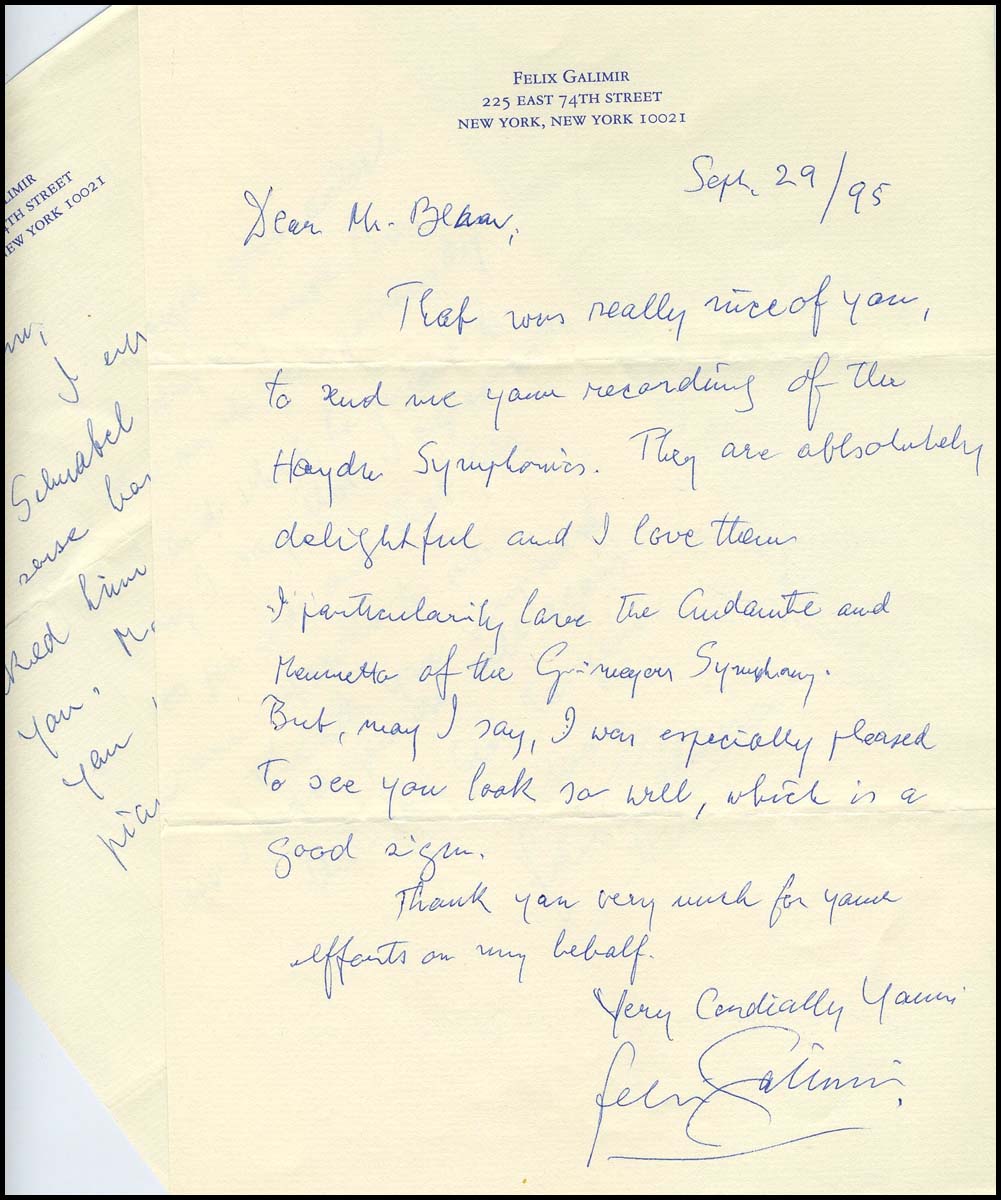 FELIX GALIMIR
225 EAST 74TH STREET
NEW YORK, NEW YORK 10021
Sept. 29/95
Dear Mr.
That was really nice of you,
to send me your recording of the
Haydn Symphonies. They are abbsolutely
delightful and I love them
I particularily love the Andante and
Menuetto of the Symphony.
But, may I say, I was especially pleased
to see you look so well, which is a
good sign.
Thank you very much for your
efforts on my behalf.
Very Cordially Yours
Felix Galimir
LIMIR
4TH STREET
EW YORK 10021
I
Schnabel
sense
him
you
you